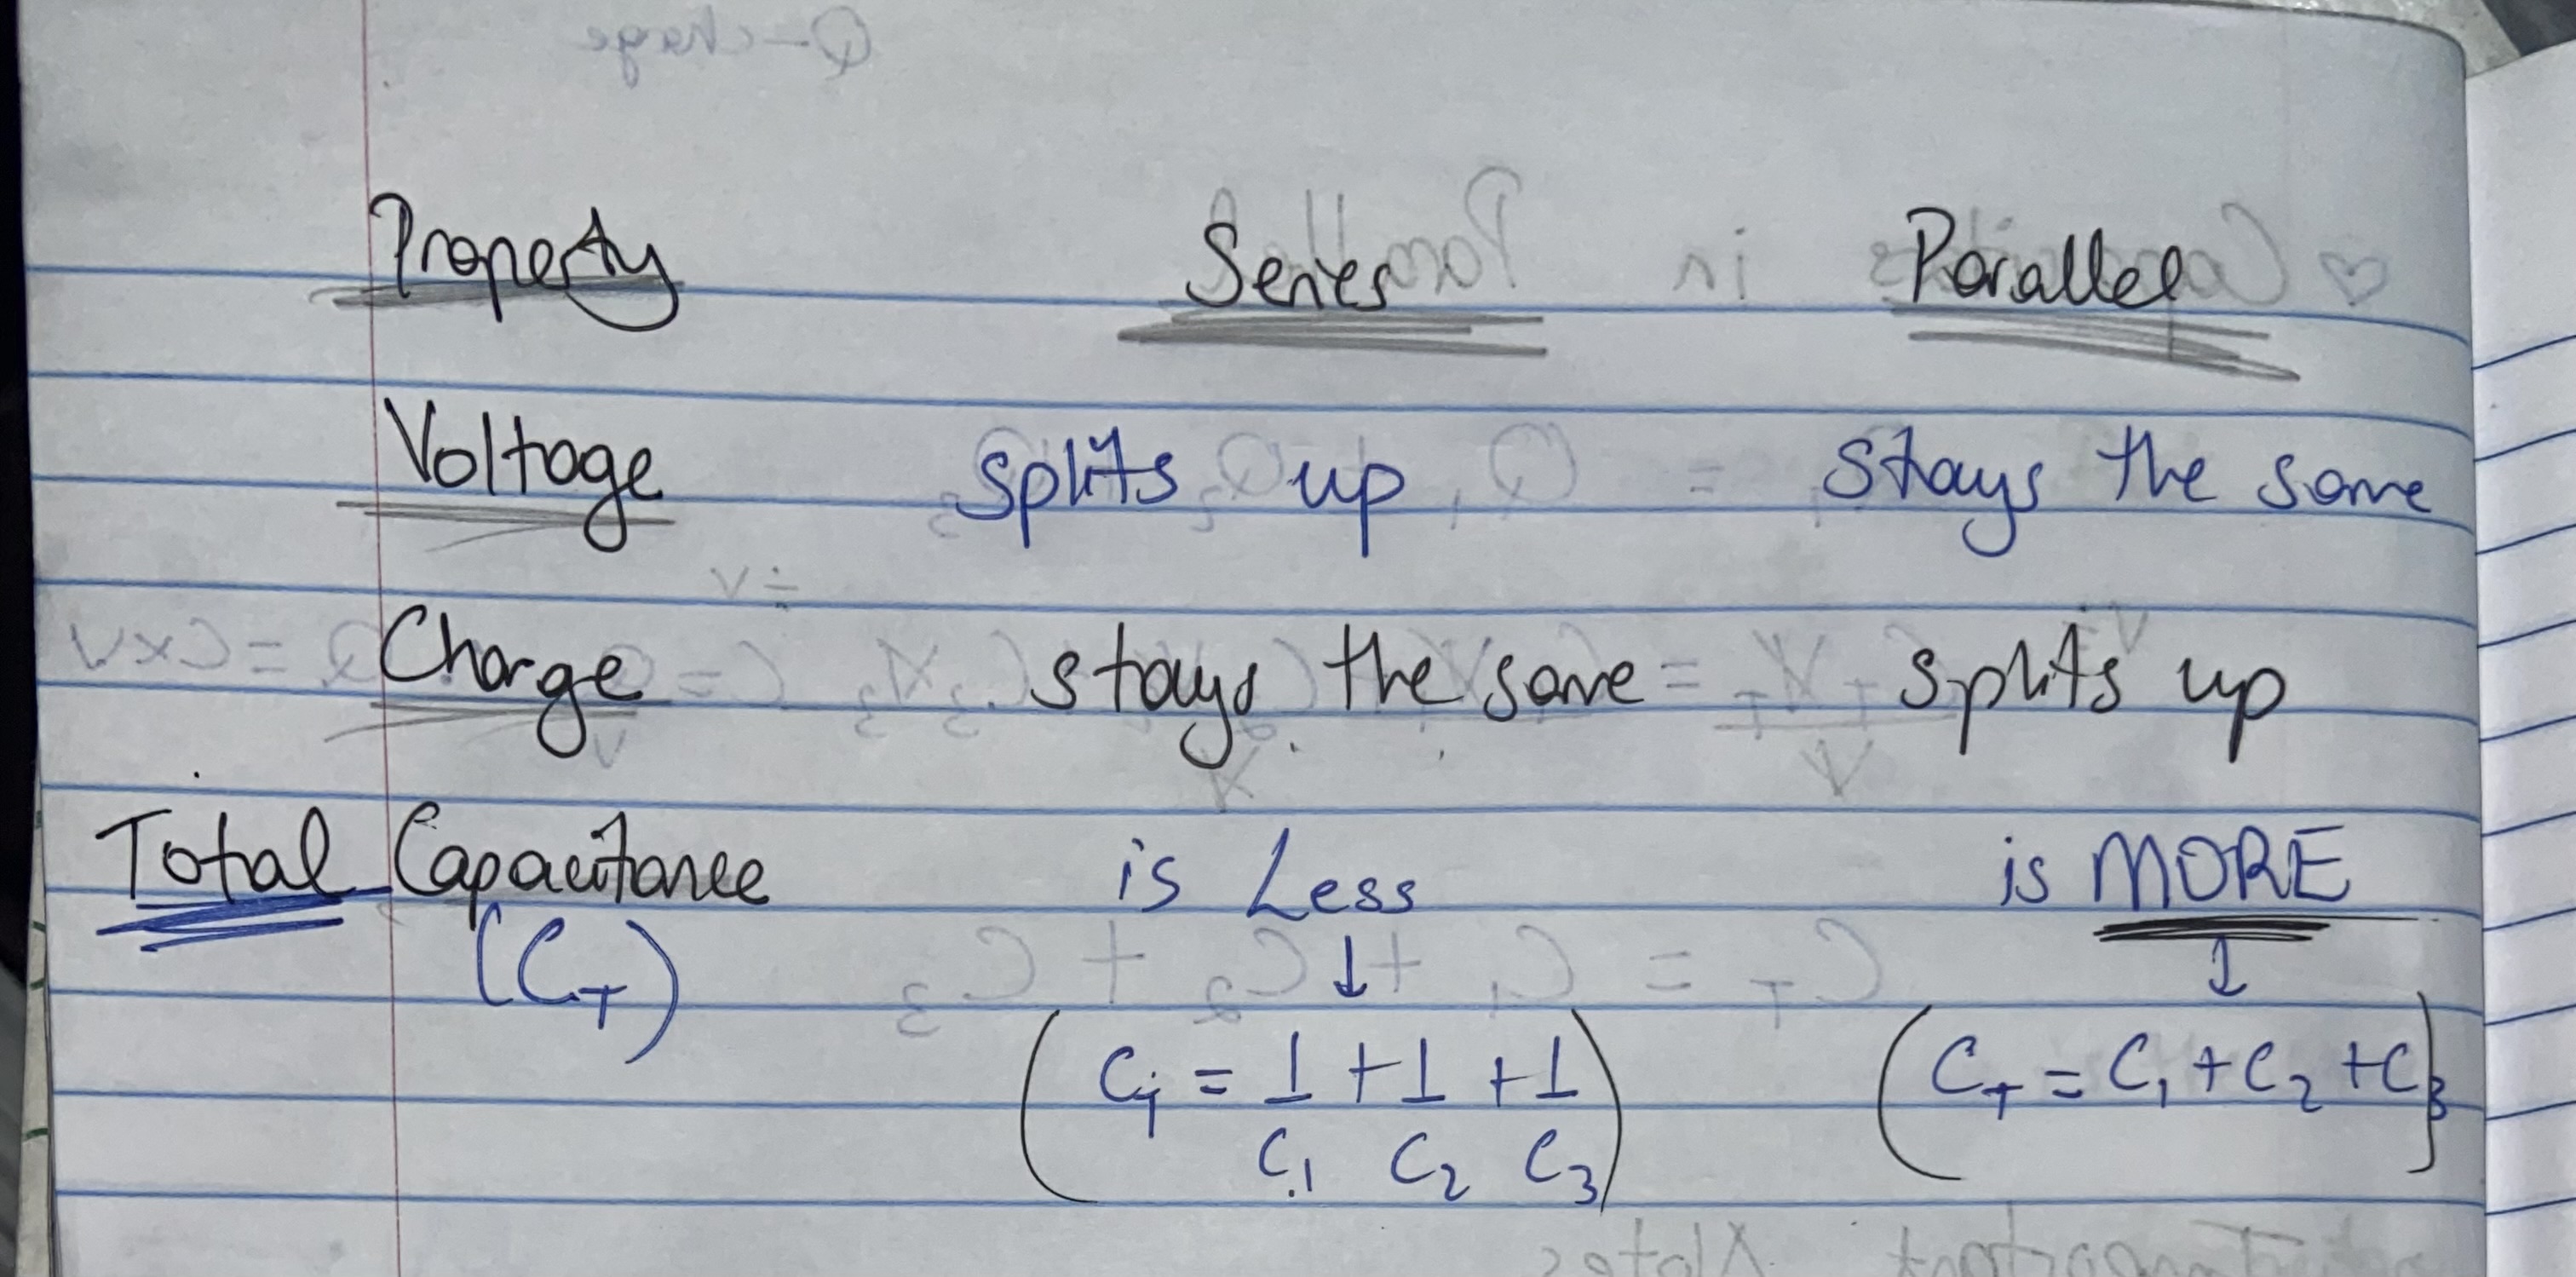 Property Series Parallel
Voltage splits up stays the same
Charge stays the same splits up
Total Capacitance is Less is MORE
(C_T) ↓ ↓
(C_T = 1/C₁ + 1/C₂ + 1/C₃) (C_T = C₁ + C₂ + C₃)